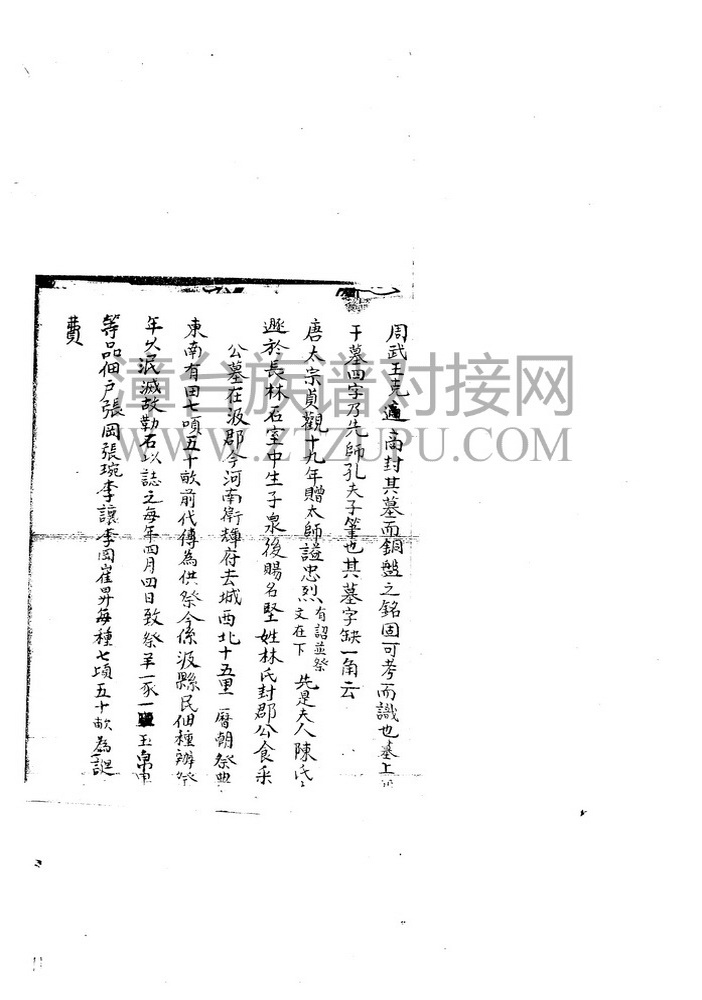 周武王克商封其墓而銅盤之銘固可考而識也墓上
干墓四字乃先師孔夫子筆也其墓字缺一角云
唐太宗貞觀十九年贈太師諡忠烈有詔並祭文在下先是夫人陳氏
避於長林石室中生子泉後賜名堅姓林氏封郡公食采
公墓在汲郡今河南衛輝府去城西北十五里曆朝祭典
東南有田七頃五十畝前代傳為供祭今係汲縣民佃種辦祭
年久泯滅故勒石以誌之每年四月四日致祭羊一豕一玉帛
等品佃戶張岡張琬李讓李岡崔昇每種七頃五十畝為
費
漳台族谱对接网
WWW.ZTZUPU.COM